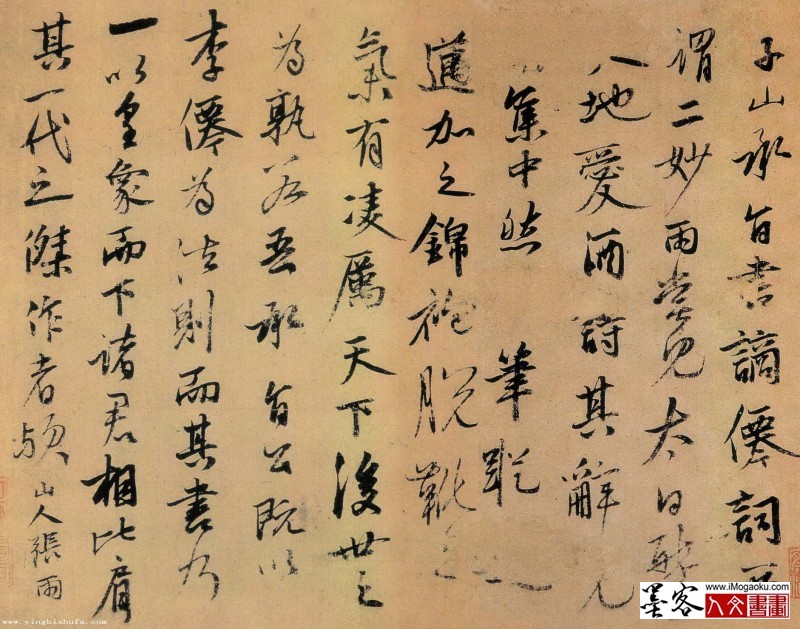 子山承旨書謫僊詞可
謂二妙雨嘗見太白醉
地愛酒詩其辭見
集中然筆蹤
邁加之錦袍脫靴
氣有凌厲天下後世之
為孰若吾承旨公既以
李僊為法則而其書乃
一以皇象而下諸君相比肩
其一代之傑作者歟山人張雨
www.yingbishufa.com
墨客
www.iMogaoku.com
人文書畫